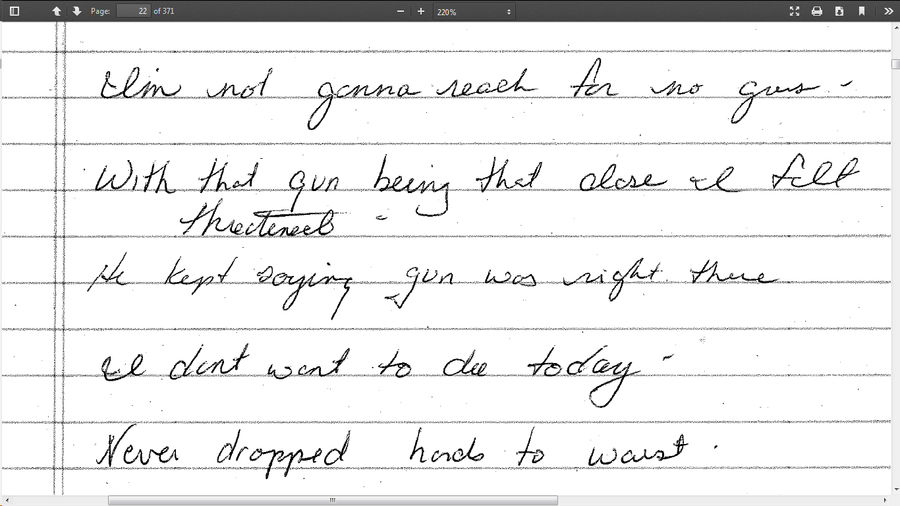 Page: 22 of 371 220%
I'm not gonna reach for no guns -
With that gun being that close I felt
threatened -
He kept saying gun was right there
I dont want to die today -
Never dropped hands to waist.